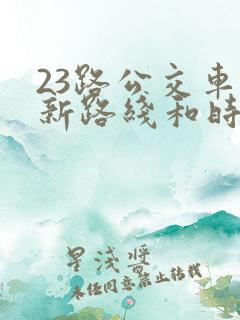 23路公交车
新路线和时
星浅酱
未经同意禁止转载